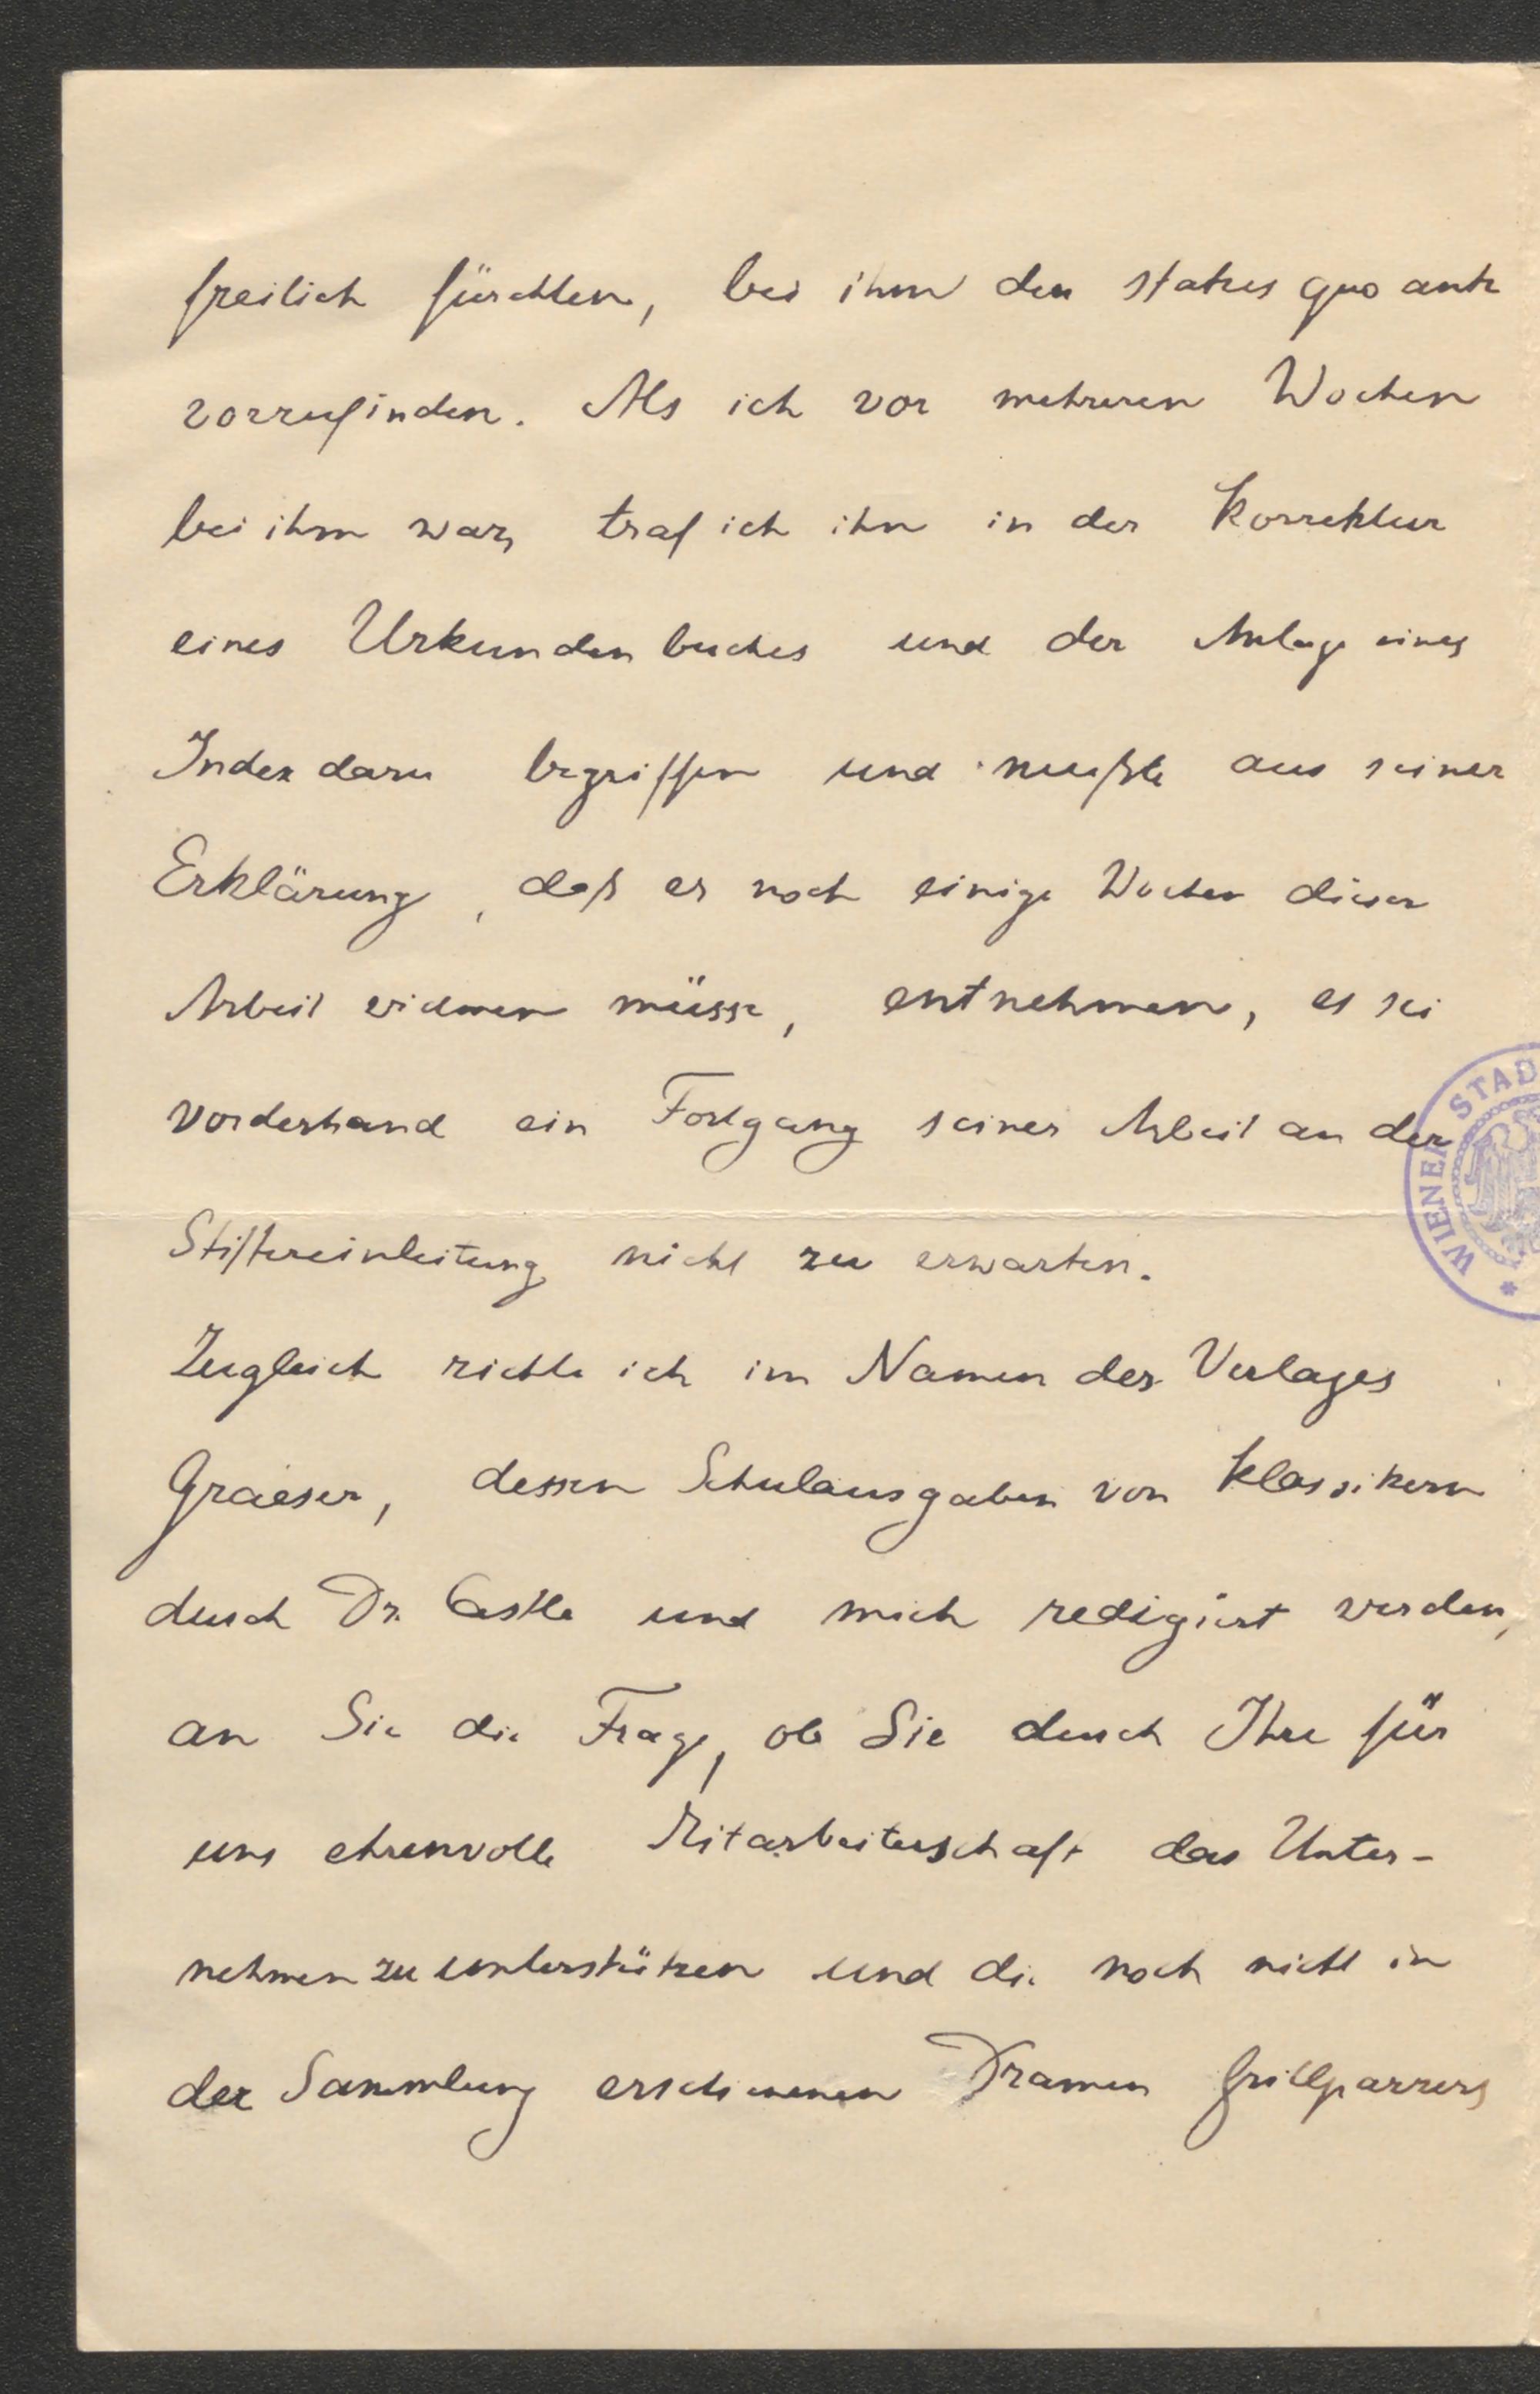 freilich fürchten, bei ihm den status quo ante
vorzufinden. Als ich vor mehreren Wochen
bei ihm war, traf ich ihn in der Korrektur
eines Urkundenbuches und der Anlage eines
Index dazu begriffen und mußte aus seiner
Erklärung, daß er noch einige Wochen dieser
Arbeit widmen müsse, entnehmen, es sei
vorderhand ein Fortgang seiner Arbeit an der
Stiftereinleitung nicht zu erwarten.
Zugleich richte ich im Namen des Verlages
Graeser, dessen Schulausgaben von Klassikern
durch Dr. Castle und mich redigiert werden,
an Sie die Frage, ob Sie durch Ihre für
uns ehrenvolle Mitarbeiterschaft das Unter-
nehmen zu unterstützen und die noch nicht in
der Sammlung erschienenen Dramen Grillparzers
WIENER STAD